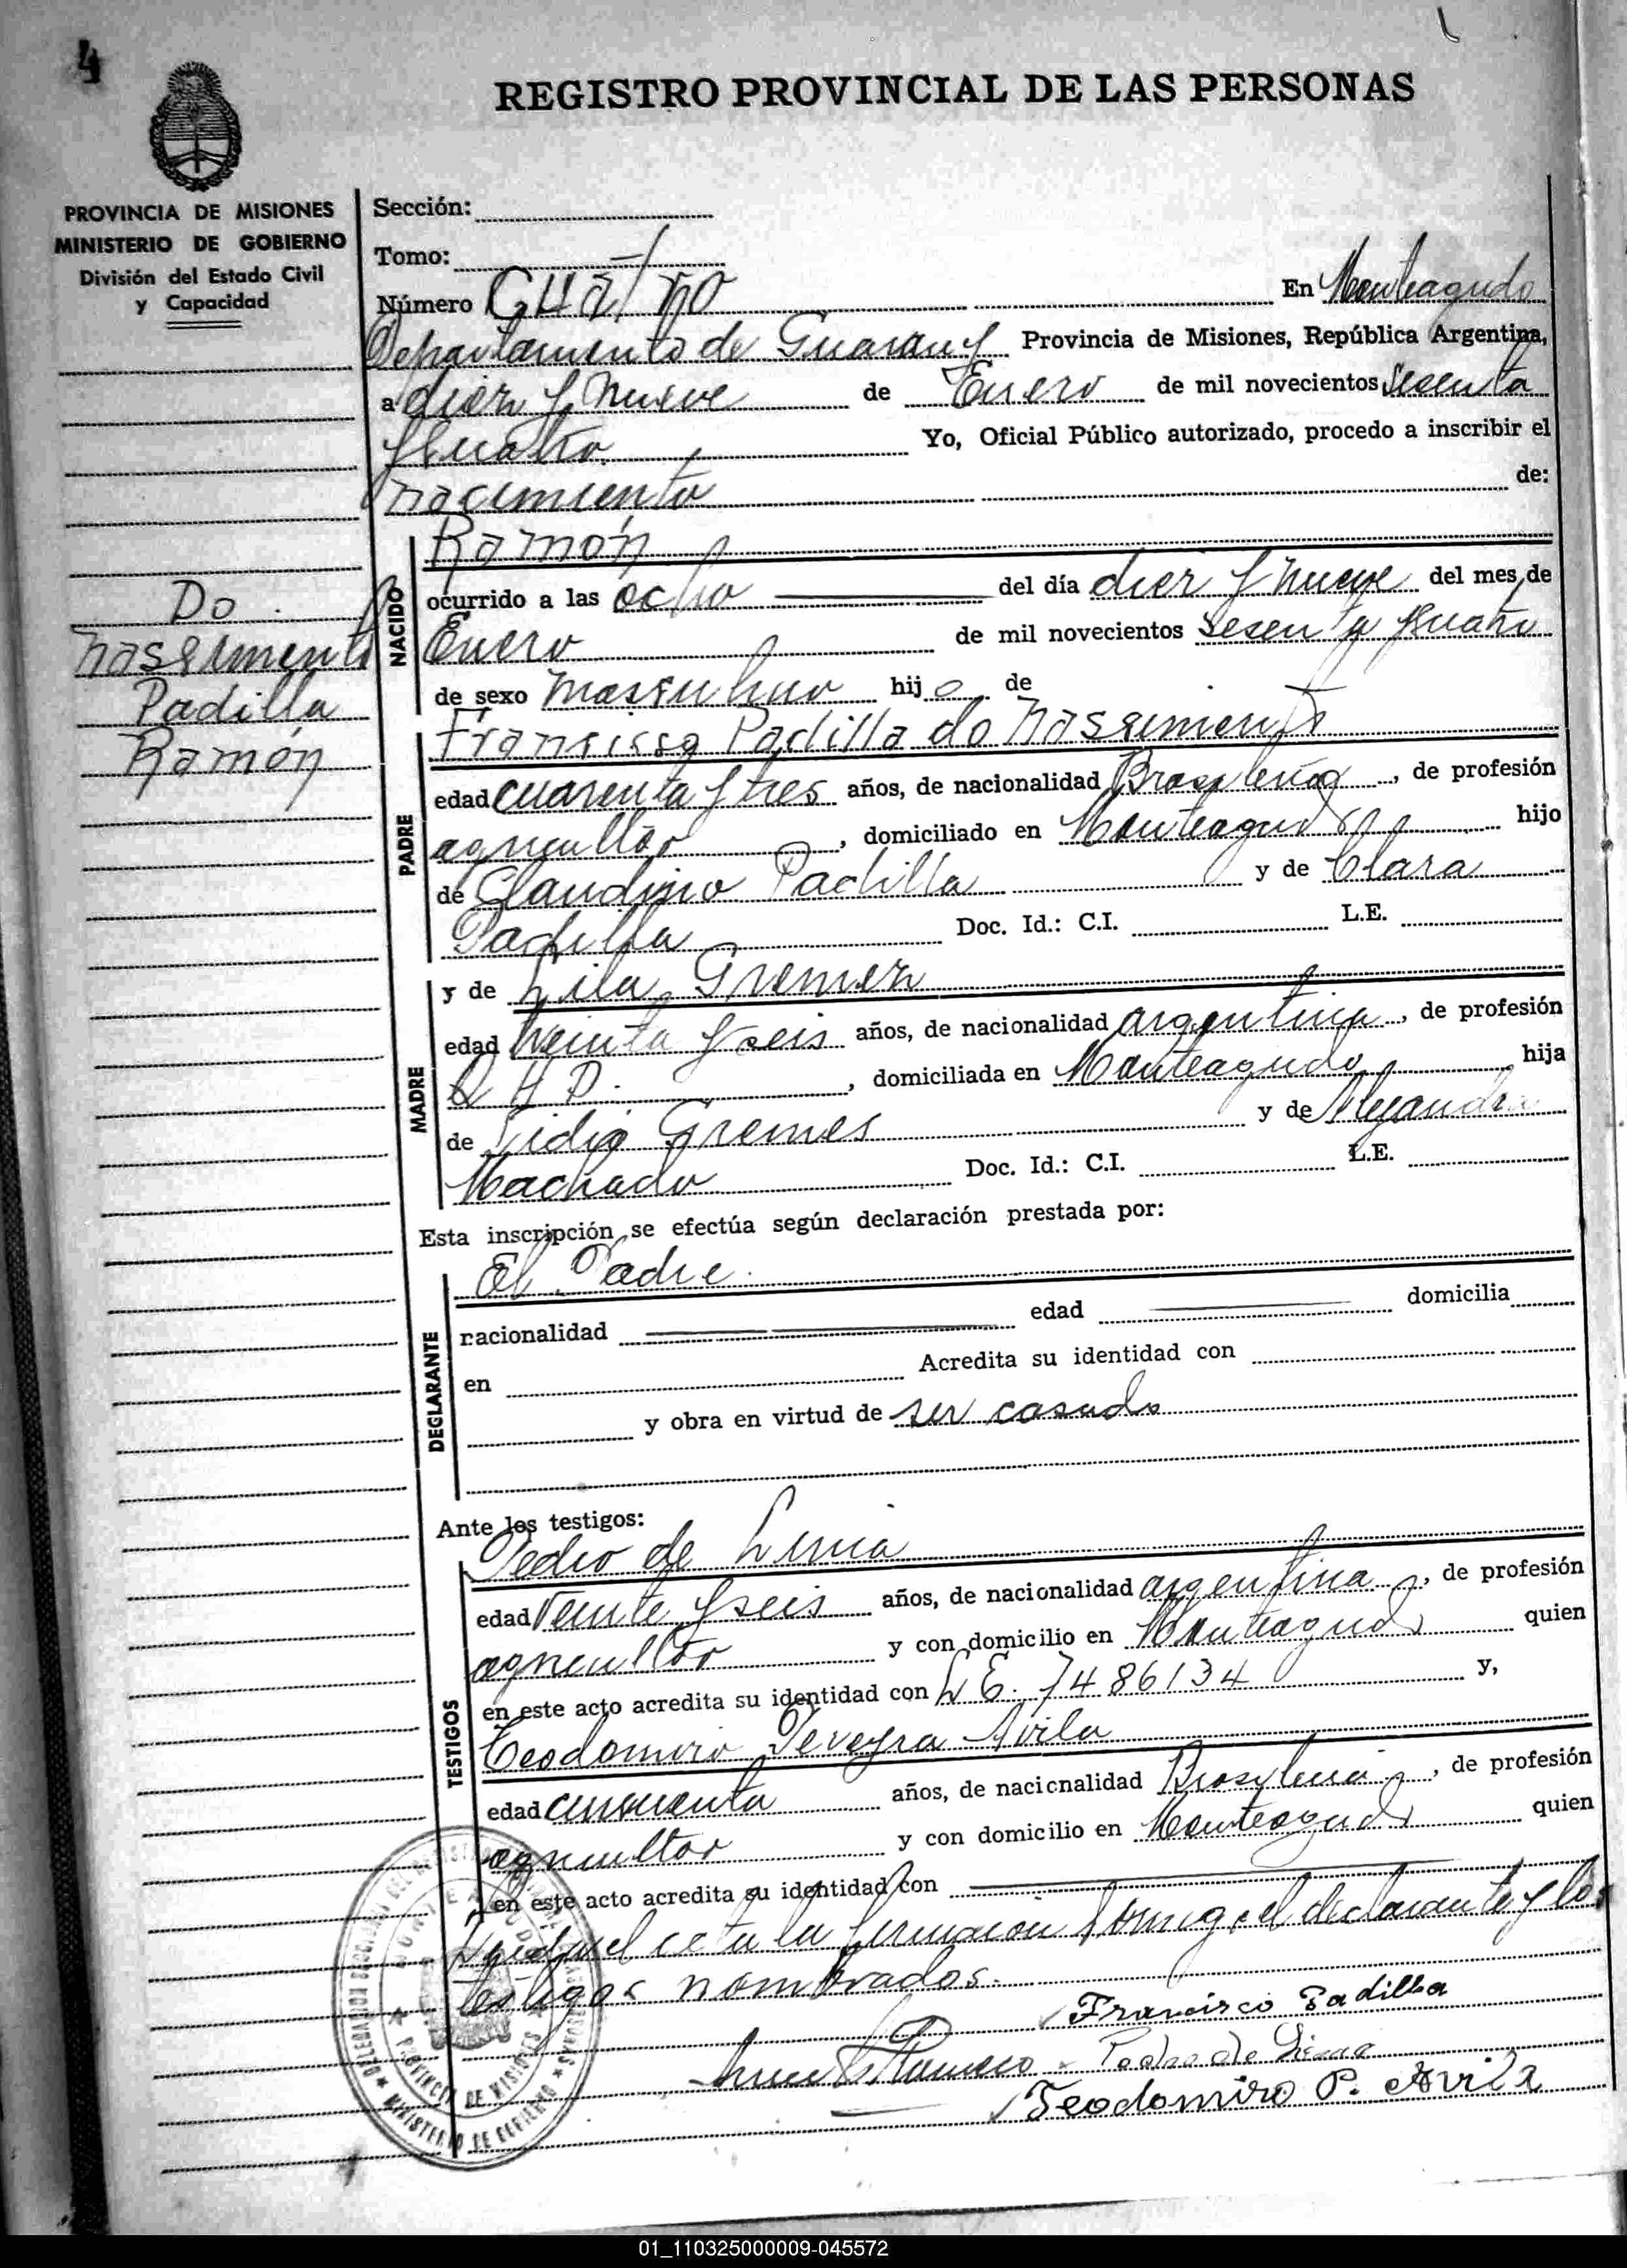 4
REGISTRO PROVINCIAL DE LAS PERSONAS
PROVINCIA DE MISIONES
MINISTERIO DE GOBIERNO
División del Estado Civil
y Capacidad
Sección:
Tomo: —
Número Cuatro En Monteagudo
Departamento de Guaraný Provincia de Misiones, República Argentina,
a diez y nueve de Enero de mil novecientos sesenta
y cuatro Yo, Oficial Público autorizado, procedo a inscribir el
nacimiento de:
Do
Nassimento
Padilla
Ramón
NACIDO
Ramón
ocurrido a las ocho del día diez y nueve del mes de
Enero de mil novecientos sesenta y cuatro
de sexo masculino hijo de
PADRE
Fransisso Padilla do Nassimento
edad cuarenta y tres años, de nacionalidad Brasyleña, de profesión
agricultor, domiciliado en Monteagudo hijo
de Claudino Padilla y de Clara
Padilla Doc. Id.: C.I. L.E.
MADRE
y de Lila Gremez
edad treinta y seis años, de nacionalidad argentina, de profesión
Q H D., domiciliada en Monteagudo hija
de Lidio Gremes y de Alejandra
Machado Doc. Id.: C.I. L.E.
Esta inscripción se efectúa según declaración prestada por:
DECLARANTE
El Padre.
nacionalidad edad domicilia
en Acredita su identidad con
y obra en virtud de ser casado
Ante los testigos:
TESTIGOS
Pedro de Lima
edad Veinte y seis años, de nacionalidad argentina, de profesión
agricultor y con domicilio en Monteagudo quien
en este acto acredita su identidad con L E. 7486134 y,
Teodomiro Pereyra Avila
edad cincuenta años, de nacionalidad Brasyleña, de profesión
agricultor y con domicilio en Monteagudo quien
en este acto acredita su identidad con
acta la firmaron conmigo el declarante y los
testigos nombrados.
Francisco Padilha
Pedro de Lima
Teodomiro P. Avila
PROVINCIA DE MISIONES
MINISTERIO DE GOBIERNO
01_110325000009-045572